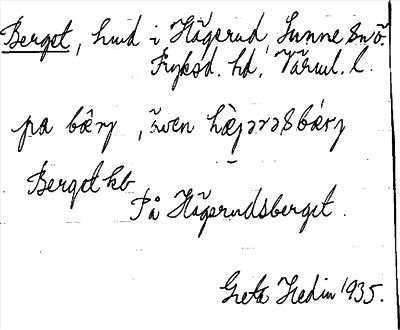 Berget, hmd i Hågerud, Sunne sn ö.
Fryksd. hd, Värml. l.
pa bær̃j, även hǡgərəsbær̀j
Berget kb
På Hågerudsberget.
Greta Hedin 1935.